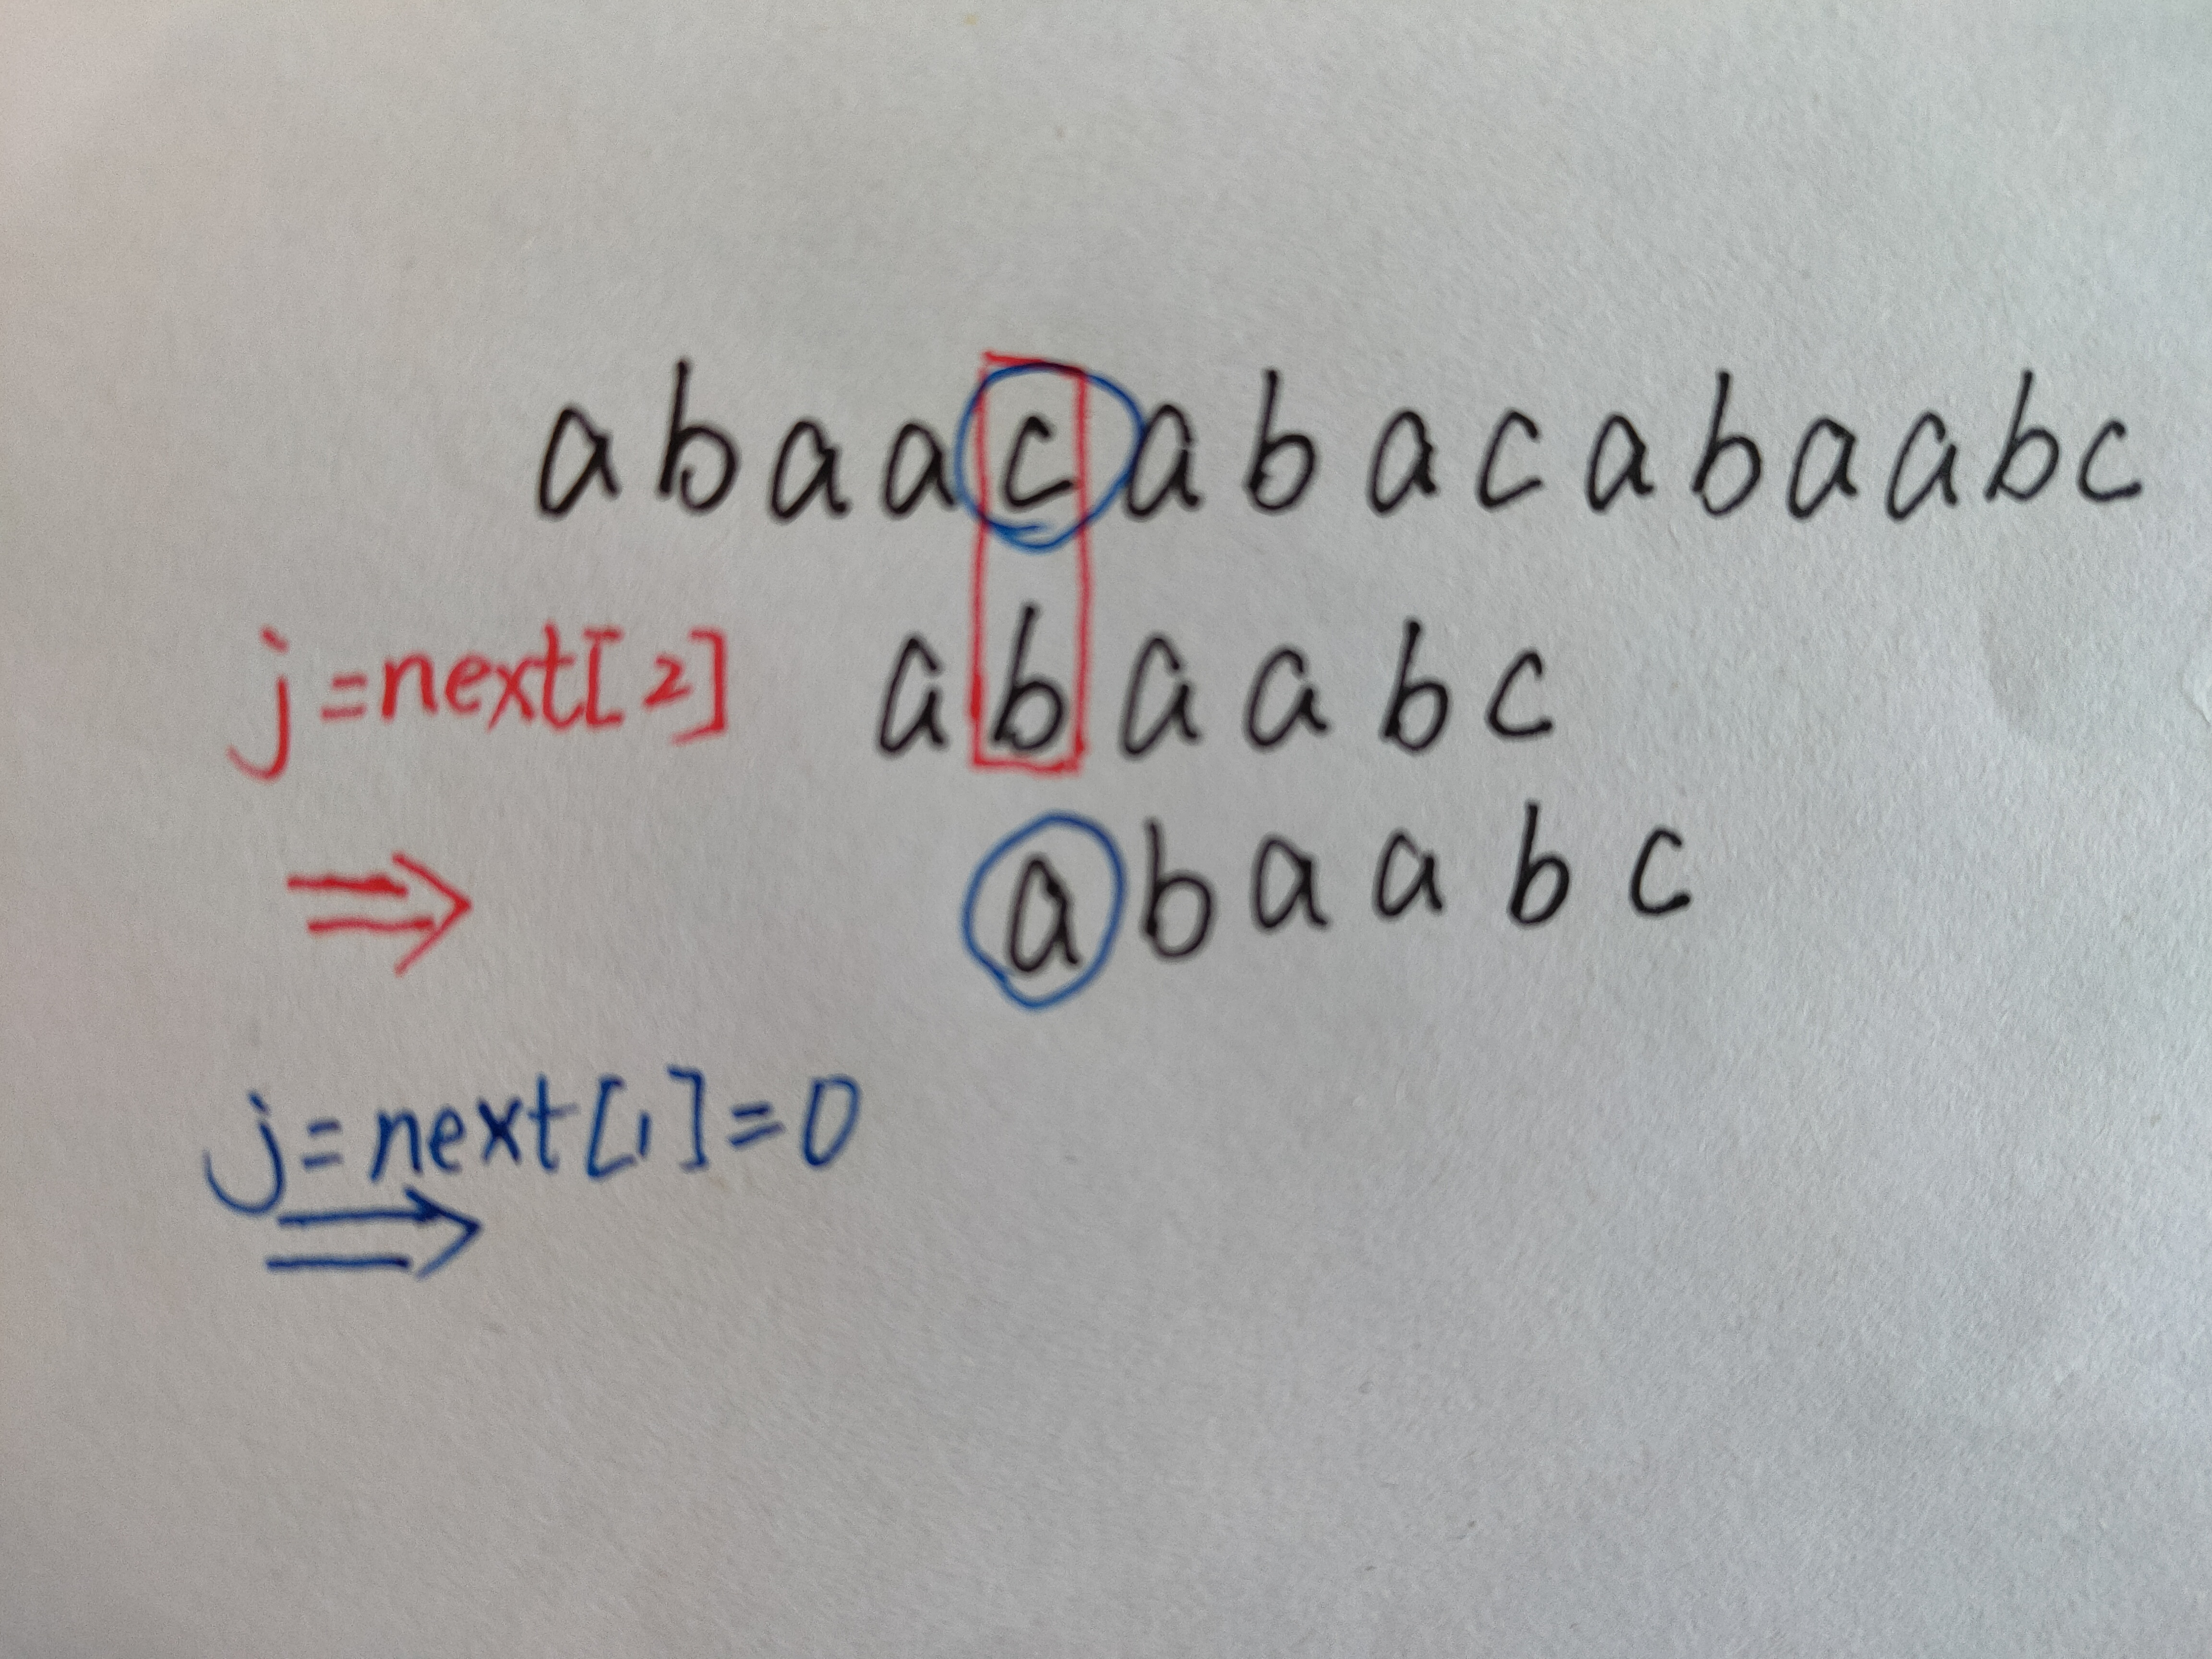 abaacabacabaabc
j=next[2] abaabc
abaabc
j=next[1]=0